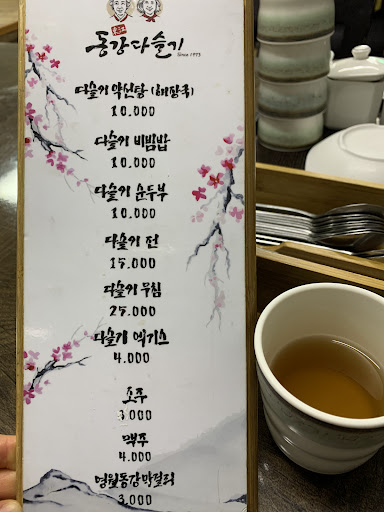 동강다슬기
Since 1993
다슬기 약신탕 (해장국)
10.000
다슬기 비빔밥
10.000
다슬기 순두부
10.000
다슬기 전
15.000
다슬기 무침
25.000
다슬기 엑기스
4.000
소주
맥주
4.000
영월동강막걸리
3.000